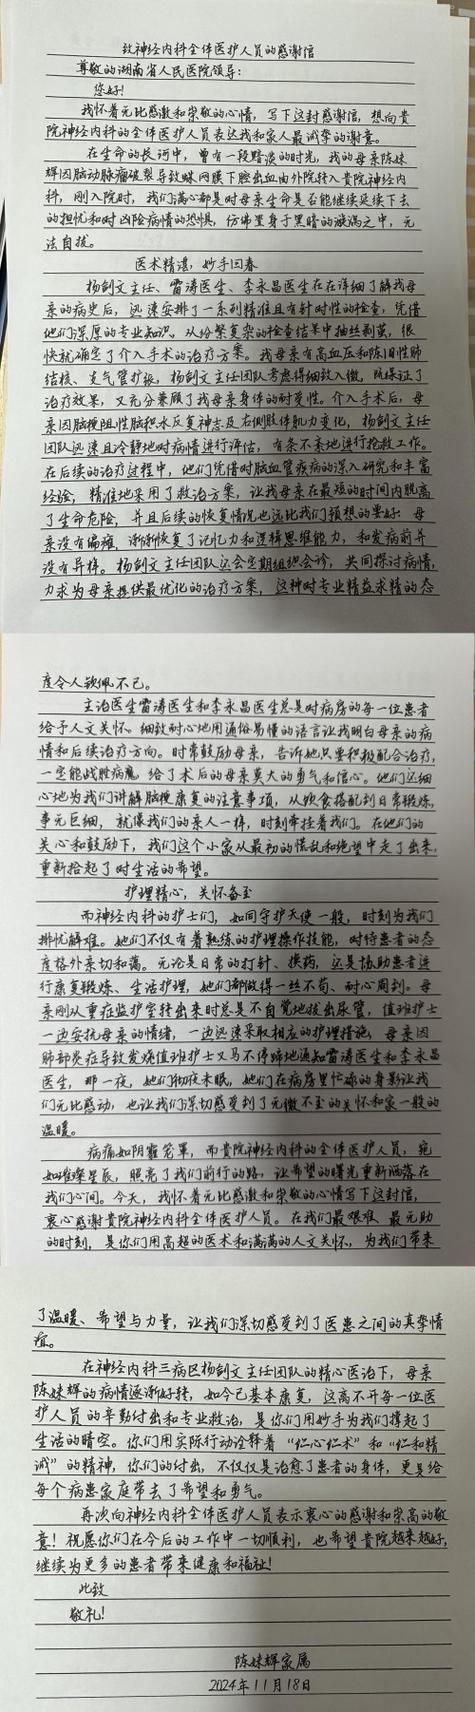 致神经内科全体医护人员的感谢信
尊敬的湖南省人民医院领导：
您好！
我怀着无比感激和崇敬的心情，写下这封感谢信，想向贵
院神经内科的全体医护人员表达我和家人最诚挚的谢意。
在生命的长河中，曾有一段黯淡的时光，我的母亲陈妹
辉因脑动脉瘤破裂导致蛛网膜下腔出血由外院转入贵院神经内
科，刚入院时，我们满心都是对母亲生命是否能继续延续下去
的担忧和对凶险病情的恐惧，仿佛置身于黑暗的漩涡之中，无
法自拔。
医术精湛，妙手回春
杨剑文主任、雷涛医生、李永昌医生在在详细了解我母
亲的病史后，迅速安排了一系列精准且有针对性的检查，凭借
他们深厚的专业知识，从纷繁复杂的检查结果中抽丝剥茧，很
快就确定了介入手术的治疗方案。我母亲有高血压和陈旧性肺
结核、支气管扩张，杨剑文主任团队考虑得细致入微，既保证了
治疗效果，又充分兼顾了我母亲身体的耐受性。介入手术后，母
亲因脑梗阻性脑积水反复神志及右侧肢体肌力变化，杨剑文主任
团队迅速且冷静地对病情进行评估，有条不紊地进行抢救工作。
在后续的治疗过程中，他们凭借对脑血管疾病的深入研究和丰富
经验，精准地采用了救治方案，让我母亲在最短的时间内脱离
了生命危险，并且后续的恢复情况也远比我们预想的要好，母
亲没有偏瘫，渐渐恢复了记忆力和逻辑思维能力，和发病前并
没有异样。杨剑文主任团队还会定期组织会诊，共同探讨病情，
力求为母亲提供最优化的治疗方案，这种对专业精益求精的态
度令人钦佩不已。
主治医生雷涛医生和李永昌医生总是对病房的每一位患者
给予人文关怀。细致耐心地用通俗易懂的语言让我明白母亲的病
情和后续治疗方向。时常鼓励母亲，告诉她只要积极配合治疗，
一定能战胜病魔，给了术后的母亲莫大的勇气和信心。他们还细
心地为我们讲解脑梗康复的注意事项，从饮食搭配到日常锻炼，
事无巨细，就像我们的亲人一样，时刻牵挂着我们。在他们的
关心和鼓励下，我们这个小家从最初的慌乱和绝望中走了出来，
重新拾起了对生活的希望。
护理精心，关怀备至
而神经内科的护士们，如同守护天使一般，时刻为我们
排忧解难。她们不仅有着熟练的护理操作技能，对待患者的态
度格外亲切和蔼。无论是日常的打针、换药，还是协助患者进
行康复锻炼、生活护理，她们都做得一丝不苟、耐心周到。母
亲刚从重症监护室转出来时总是不自觉地拔出尿管，值班护士
一边安抚母亲的情绪，一边迅速采取相应的护理措施，母亲因
肺部炎症导致发烧值班护士又马不停蹄地通知雷涛医生和李永昌
医生，那一夜，她们彻夜未眠，她们在病房里忙碌的身影让我
们无比感动，也让我们深切感受到了无微不至的关怀和家一般的
温暖。
病痛如阴霾笼罩，而贵院神经内科的全体医护人员，宛
如璀璨星辰，照亮了我们前行的路，让希望的曙光重新洒落在
我们心间。今天，我怀着无比感激和崇敬的心情写下这封信，
衷心感谢贵院神经内科全体医护人员。在我们最艰难、最无助
的时刻，是你们用高超的医术和满满的人文关怀，为我们带来
了温暖、希望与力量，让我们深切感受到了医患之间的真挚情
谊。
在神经内科三病区杨剑文主任团队的精心医治下，母亲
陈妹辉的病情逐渐好转，如今已基本康复，这离不开每一位医
护人员的辛勤付出和专业救治，是你们用妙手为我们撑起了
生活的晴空。你们用实际行动诠释着“仁心仁术”和“仁和精
诚”的精神，你们的付出，不仅仅是治愈了患者的身体，更是给
每个病患家庭带去了希望和勇气。
再次向神经内科全体医护人员表示衷心的感谢和崇高的敬
意！祝愿你们在今后的工作中一切顺利，也希望贵院越来越好，
继续为更多的患者带来健康和福祉！
此致
敬礼！
陈妹辉家属
2024年11月18日